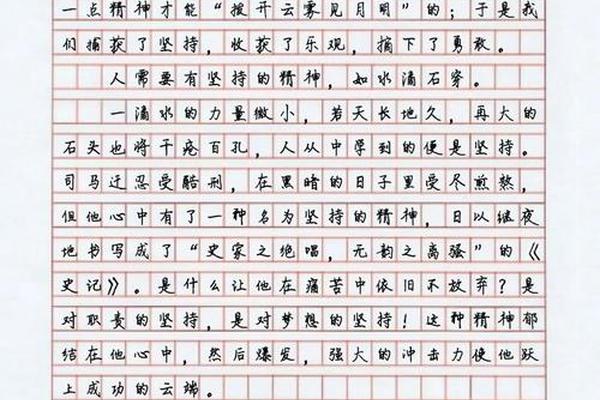 一点精神才能“拨开云雾见月明”的；于是我
们捕获了坚持，收获了乐观，摘下了勇敢。
人需要有坚持的精神，如水滴石穿。
一滴水的力量微小，若天长地久，再大的
石头也将千疮百孔，人从中学到的便是坚持。
司马迁忍受酷刑，在黑暗的日子里受尽煎熬，
但他心中有了一种名为坚持的精神，日以继夜
地书写成了“史家之绝唱，无韵之离强”的《
史记》。是什么让他在痛苦中依旧不放弃？是
对职责的坚持，是对梦想的坚持！这种精神郁
结在他心中，然后爆发，强大的冲击力使他跃
上成功的云端。